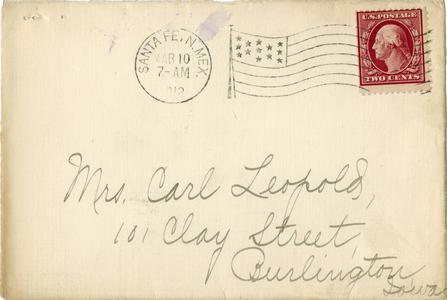 SANTA FE, N. MEX.
MAR 10
7-AM
1912
U.S. POSTAGE
TWO CENTS
Mrs. Carl Leopold,
101 Clay Street,
Burlington
Iowa